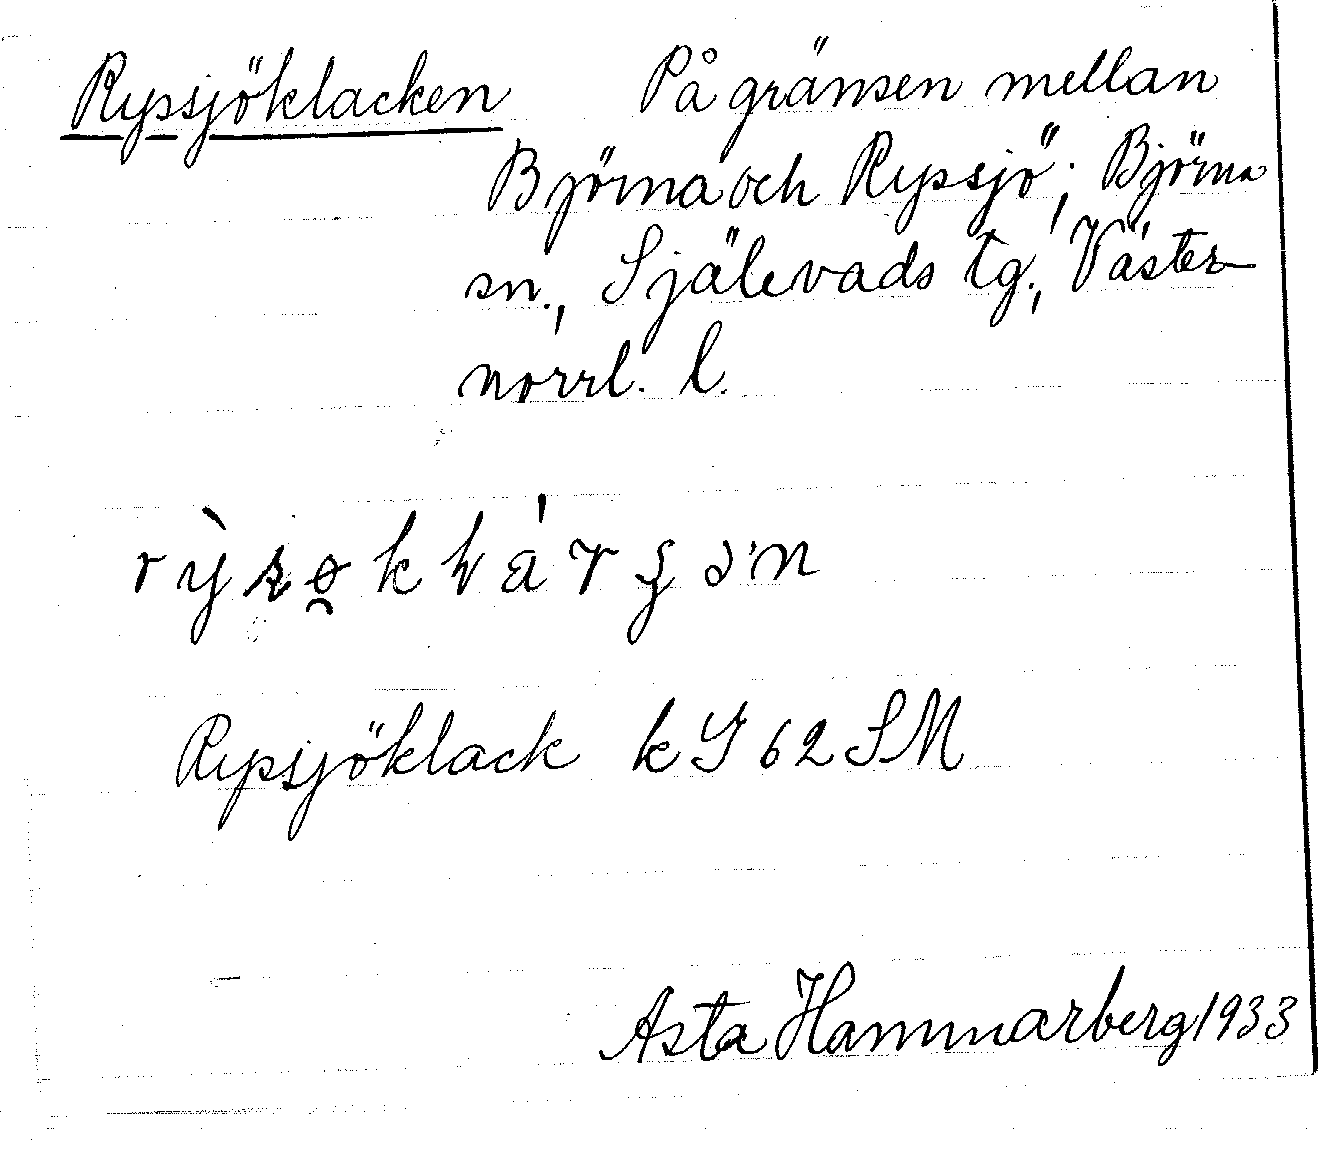 Rypsjöklacken På gränsen mellan
Björna och Rypsjö; Björna
sn., Själevads tg., Väster-
norrl. l.
Rypsjöklack k G 62 SM
Asta Hammarberg 1933